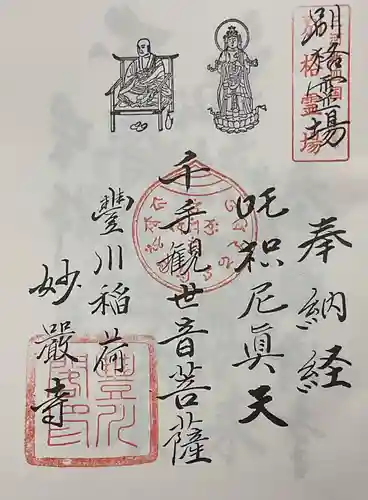 別格霊場
奉納経
吒枳尼眞天
千手観世音菩薩
豐川稲荷
妙嚴寺